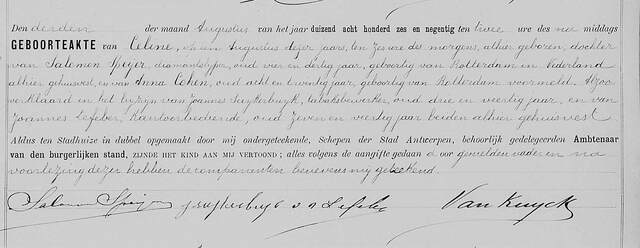 Den derden der maand Augustus van het jaar duizend acht honderd zes en negentig ten twee ure des na middags
GEBOORTEAKTE van Celine, den een Augustus dezer jaars, ten zes ure des morgens, alhier geboren, dochter
van Salomon Speyer, diamantslyper, oud vier en dertig jaar, geboortig van Rotterdam in Nederland
alhier gehuisvest, en van Anna Cohen, oud acht en twintig jaar, geboortig van Rotterdam voormeld. Alzoo
verklaard in het byzyn van Joannes Suykerbuyk, tabakbewerker, oud drie en veertig jaar, en van
Joannes Lefeber, Kantoorbediende, oud zeven en veertig jaar beiden alhier gehuisvest
Aldus ten Stadhuize in dubbel opgemaakt door mij ondergeteekende, Schepen der Stad Antwerpen, behoorlijk gedelegeerden Ambtenaar
van den burgerlijken stand, ZIJNDE HET KIND AAN MIJ VERTOOND; alles volgens de aangifte gedaan door gemelden vader en na
voorlezing dezer hebben de comparanten benevens my geteekend.
Salomon Speyer J Suykerbuyk Lefeber Van Kuyck